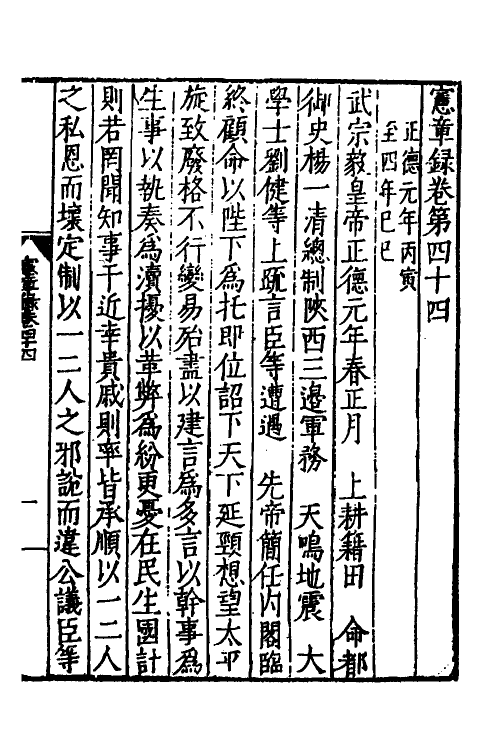 憲章録卷第四十四
正德元年丙寅
至四年己巳
武宗毅皇帝正德元年春正月　上耕籍田　命都
御史楊一清總制陝西三邉軍務　天鳴地震　大
學士劉健等上疏言臣等遭遇　先帝簡任内閣臨
終顧命以陛下為托即位詔下天下延頸想望太平
旋致廢格不行變易殆盡以建言為多言以幹事為
生事以執奏為瀆擾以革弊為紛更憂在民生國計
則若罔聞知事干近幸貴戚則率皆承順以一二人
之私恩而壞定制以一二人之邪說而違公議臣等
憲章録卷四十四
一